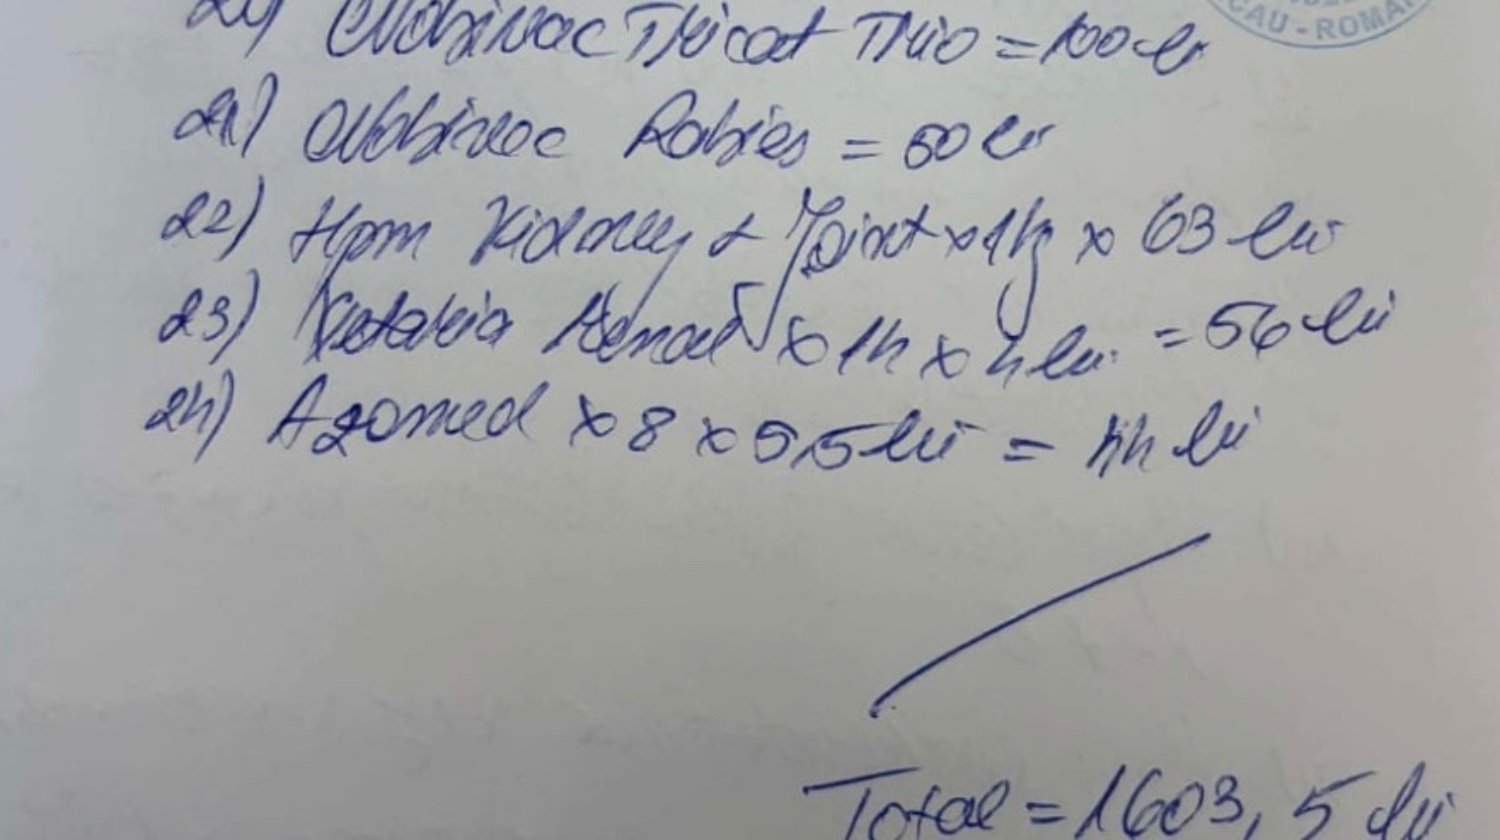 CAU - ROMÂN
20) Nobivac Tricat Trio = 100 lei
21) Nobivac Rabies = 50 lei
22) Hpm Kidney + Joint x 1kg x 63 lei
23) Renal x 14 x 4 lei = 56 lei
24) Azomed x 8 x 5,5 lei = 44 lei
Total = 1603,5 lei